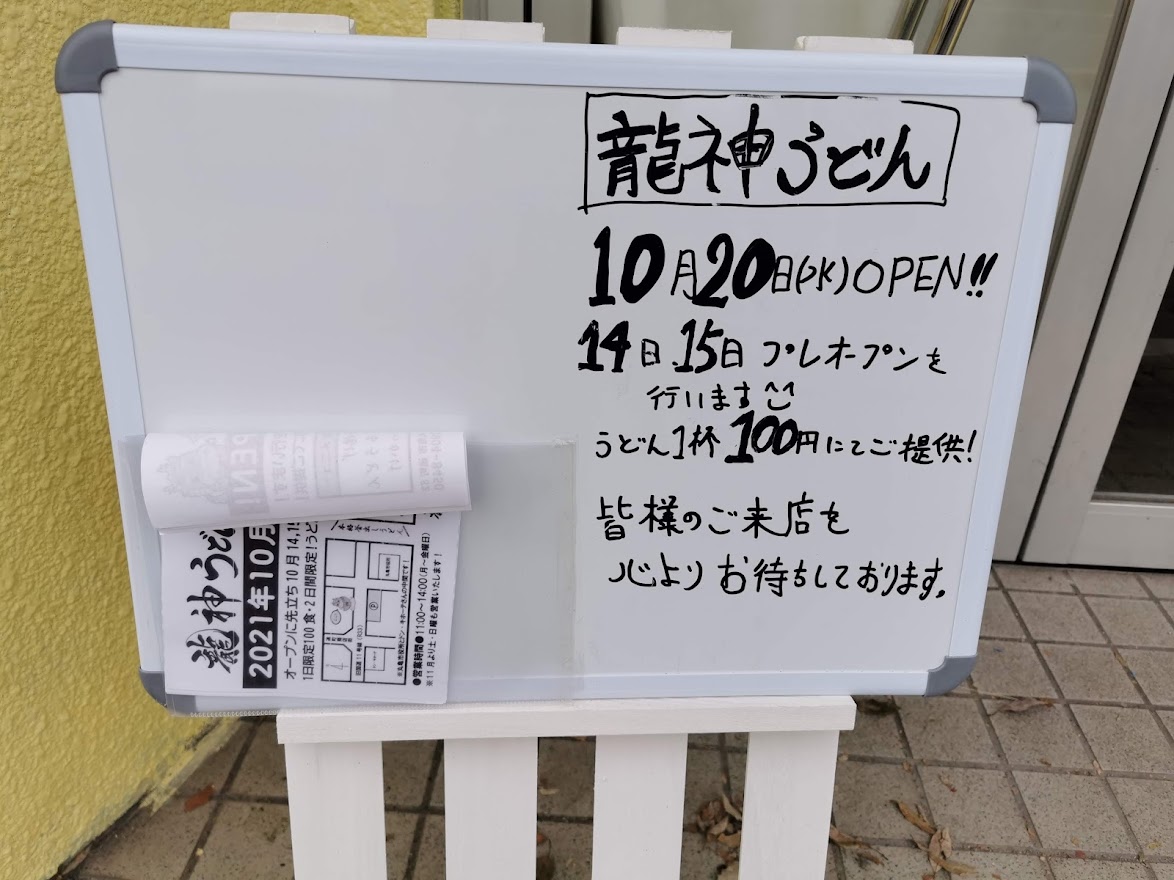 龍神うどん
10月20日(水)OPEN!!
14日.15日 プレオープンを
行います^^
うどん1杯 100円にてご提供!
皆様のご来店を
心よりお待ちしております。
龍神うど
2021年10月
オープンに先立ち10月14,15
1日限定100食・2日間限定!うど
旧国道11号線
P
※丸亀市役所とドン・キホーテさんの中間です!
●営業時間●11:00~14:00(月~金曜日)
※11月より土・日曜も営業いたします!